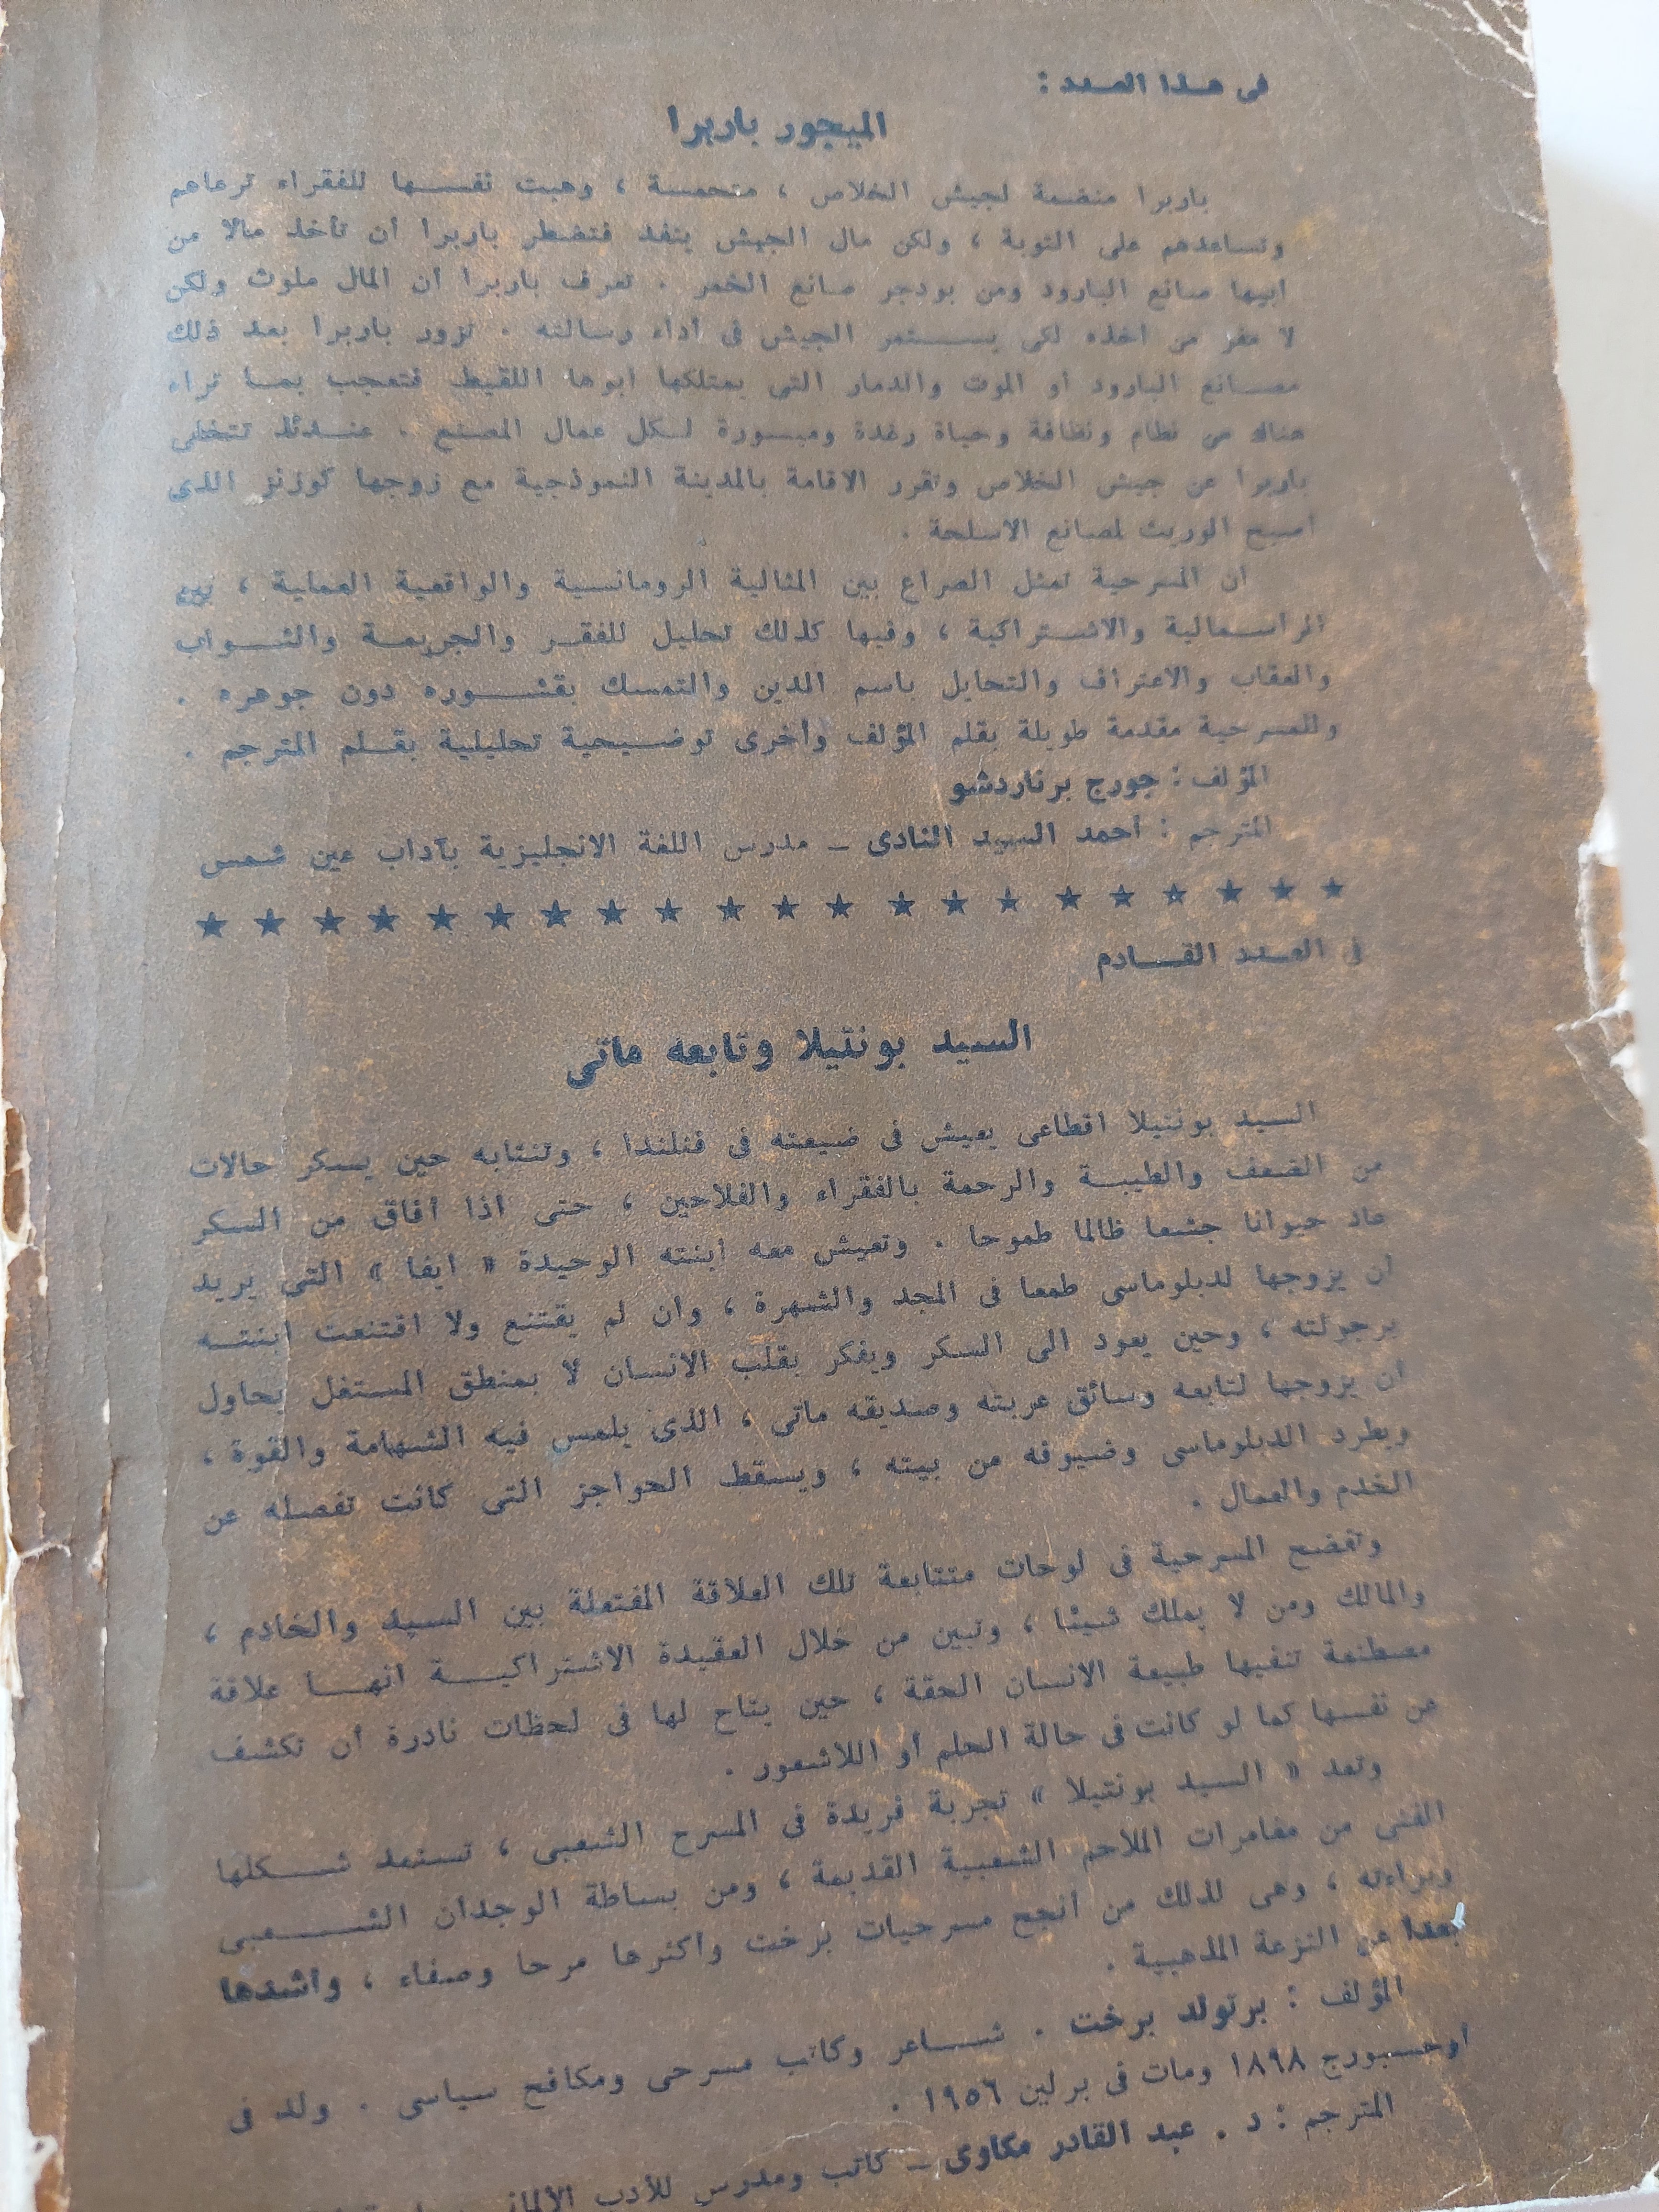 فى هـذا العـدد :
الميجور باربرا
باربرا منضمة لجيش الخلاص ، متحمسة ، وهبت نفسـها للفقراء ترعاهم
وتساعدهم على التوبة ، ولكن مال الجيش ينفد فتضطر باربرا أن تأخذ مالا من
أبيها صانع البارود ومن بودجر صانع الخمر . تعرف باربرا أن المال ملوث ولكن
لا مفر من أخذه لكى يسـتمر الجيش فى أداء رسالته . تزور باربرا بعد ذلك
مصـانع البارود أو الموت والدمار التى يمتلكها أبوها اللقيط فتعجب بمـا تراه
هناك من نظام ونظافة وحياة رغدة وميسورة لـكل عمال المصنع . عنـدئذ تتخلى
باربرا عن جيش الخلاص وتقرر الاقامة بالمدينة النموذجية مع زوجها كوزنز الذى
أصبح الوريث لمصانع الاسلحة .
ان المسرحية تمثل الصراع بين المثالية الرومانسية والواقعية العملية ، بين
الراسـمالية والاشـتراكية ، وفيها كذلك تحليل للفقـر والجريمـة والثـواب
والعقاب والاعتراف والتحايل باسم الدين والتمسك بقشـوره دون جوهره .
وللمسرحية مقدمة طويلة بقلم المؤلف وأخرى توضـيحية تحليلية بقـلم المترجم .
المؤلف : جورج برناردشو
المترجم : أحمد السيد النادى ـ مدرس اللغة الانجليزية بآداب عين شمس
★ ★ ★ ★ ★ ★ ★ ★ ★ ★ ★ ★ ★ ★ ★ ★ ★ ★ ★ ★ ★
فى العـدد القـادم
السيد بونتيلا وتابعه ماتى
السيد بونتيلا اقطاعى يعيش فى ضيعته فى فنلندا ، وتنتابه حين يسكر حالات
من الضعف والطيبـة والرحمة بالفقراء والفلاحين ، حتى اذا أفاق من السكر
عاد حيوانا جشعا ظالما طموحا . وتعيش معه ابنته الوحيدة « ايفا » التى يريد
أن يزوجها لدبلوماسى طمعا فى المجد والشهرة ، وان لم يقتنع ولا اقتنعت ابنتـه
برجولته ، وحين يعود الى السكر ويفكر بقلب الانسان لا بمنطق المستغل يحاول
أن يزوجها لتابعه وسائق عربته وصديقه ماتى ، الذى يلمس فيه الشهامة والقوة ،
ويطرد الدبلوماسى وضيوفه من بيته ، ويسقط الحواجز التى كانت تفصله عن
الخدم والعمال .
وتفضح المسرحية فى لوحات متتابعة تلك العلاقة المفتعلة بين السيد والخادم ،
والمالك ومن لا يملك شيئا ، وتبين من خلال العقيدة الاشتراكيـة انهـا علاقة
مصطنعة تنفيها طبيعة الانسان الحقة ، حين يتاح لها فى لحظات نادرة أن تكشف
عن نفسها كما لو كانت فى حالة الحلم أو اللاشعور .
وتعد « السيد بونتيلا » تجربة فريدة فى المسرح الشعبى ، تستمد شـكلها
الفنى من مغامرات الملاحم الشعبية القديمة ، ومن بساطة الوجدان الشـعبى
وبراءته ، وهى لذلك من أنجح مسرحيات برخت وأكثرها مرحا وصفاء ، وأشدها
بعدا عن النزعة المذهبية .
المؤلف : برتولد برخت . شـاعر وكاتب مسرحى ومكافح سياسى . ولد فى
أوجسبورج ١٨٩٨ ومات فى برلين ١٩٥٦ .
المترجم : د . عبد القادر مكاوى ـ كاتب ومدرس للأدب الألمانى